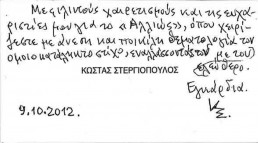 Με φιλικούς χαιρετισμούς και τις ευχα-
ριστίες μου για το «Αλλιώς», όπου χειρί-
ζεστε με άνεση και ποικίλη θεματολογία τον
ομοιοκατάληκτο στίχο, εναλλάσσοντάς τον με τον
ελεύθερο.
ΚΩΣΤΑΣ ΣΤΕΡΓΙΟΠΟΥΛΟΣ
Εγκάρδια.
Κ.Σ.
9.10.2012.